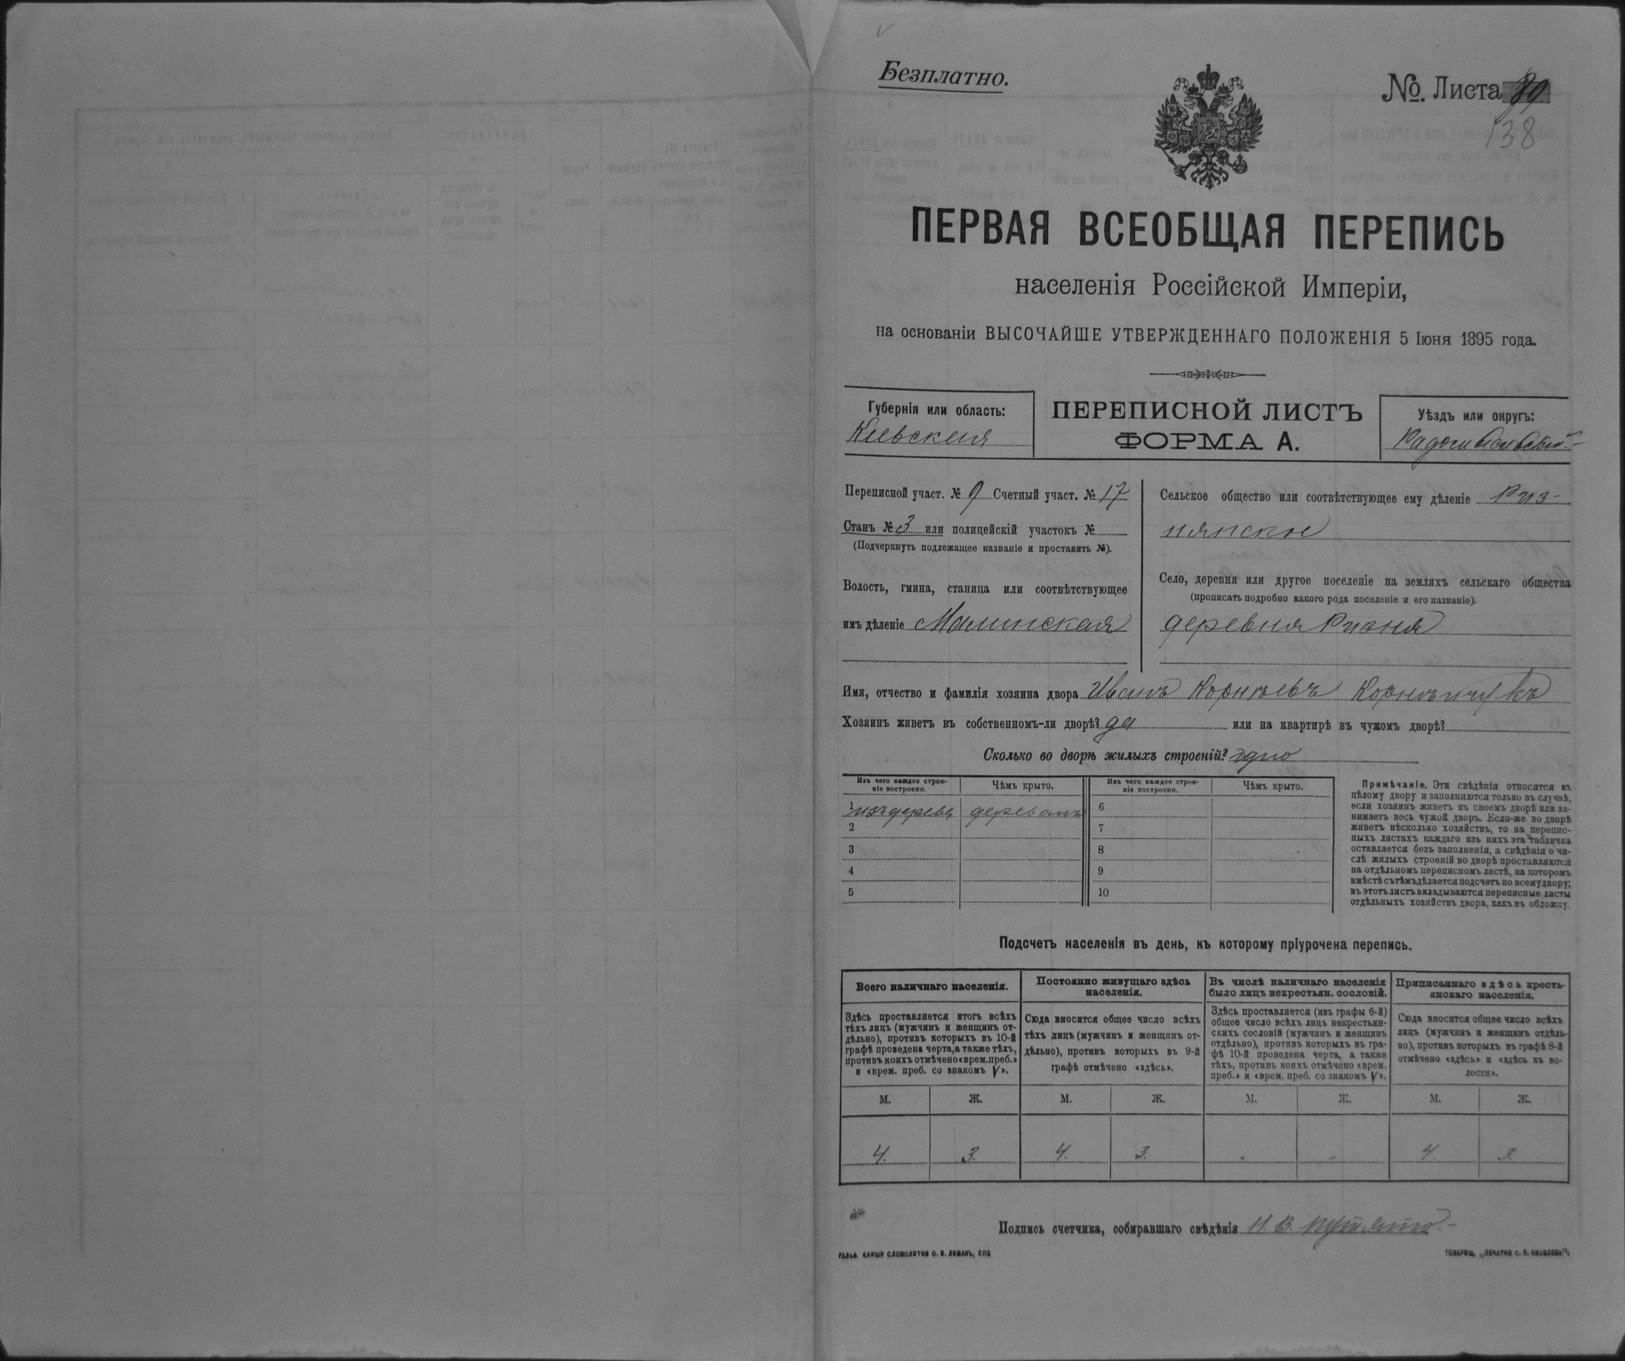 Безплатно.
№. Листа 89
138
ПЕРВАЯ ВСЕОБЩАЯ ПЕРЕПИСЬ
населенія Россійской Имперіи,
на основаніи ВЫСОЧАЙШЕ УТВЕРЖДЕННАГО ПОЛОЖЕНІЯ 5 Іюня 1895 года.
Губернія или область:
Кіевская
ПЕРЕПИСНОЙ ЛИСТЪ
ФОРМА А.
Уѣздъ или округъ:
Радомысльскій
Переписной участ. № 9 Счетный участ. № 17
Станъ № 3 или полицейскій участокъ №
(Подчеркнуть подлежащее названіе и проставить №).
Волость, гмина, станица или соотвѣтствующее
имъ дѣленіе Малинская
Сельское общество или соотвѣтствующее ему дѣленіе Риз-
нянское
Село, деревня или другое поселеніе на земляхъ сельскаго общества
(прописать подробно какого рода поселеніе и его названіе).
деревня Ризня
Имя, отчество и фамилія хозяина двора Иванъ Корнѣевъ Корнѣйчукъ
Хозяинъ живетъ въ собственномъ-ли дворѣ? да или на квартирѣ въ чужомъ дворѣ?
Сколько во дворѣ жилыхъ строеній? одно
Изъ чего каждое строе-
ніе построено.
Чѣмъ крыто.
Изъ чего каждое строе-
ніе построено.
Чѣмъ крыто.
1 изъ дерева деревомъ
2
3
4
5
6
7
8
9
10
Примѣчаніе. Эти свѣдѣнія относятся къ
цѣлому двору и заполняются только въ случаѣ,
если хозяинъ живетъ въ своемъ дворѣ или за-
нимаетъ весь чужой дворъ. Если-же во дворѣ
живетъ нѣсколько хозяйствъ, то на перепис-
ныхъ листахъ каждаго изъ нихъ эта табличка
оставляется безъ заполненія, а свѣдѣнія о чи-
слѣ жилыхъ строеній во дворѣ проставляются
на отдѣльномъ переписномъ листѣ, на которомъ
вмѣстѣ съ тѣмъ дѣлается подсчетъ по всему двору;
въ этотъ листъ вкладываются переписные листы
отдѣльныхъ хозяйствъ двора, какъ въ обложку.
Подсчетъ населенія въ день, къ которому пріурочена перепись.
Всего наличнаго населенія.
Здѣсь проставляется итогъ всѣхъ
тѣхъ лицъ (мужчинъ и женщинъ от-
дѣльно), противъ которыхъ въ 10-й
графѣ проведена черта, а также тѣхъ,
противъ коихъ отмѣчено «врем. преб.»
и «врем. преб. со знакомъ V».
Постоянно живущаго здѣсь
населенія.
Сюда вносится общее число всѣхъ
тѣхъ лицъ (мужчинъ и женщинъ от-
дѣльно), противъ которыхъ въ 9-й
графѣ отмѣчено «здѣсь».
Въ числѣ наличнаго населенія
было лицъ некрестьян. сословій.
Здѣсь проставляется (изъ графы 6-й)
общее число всѣхъ лицъ некрестьян-
скихъ сословій (мужчинъ и женщинъ
отдѣльно), противъ которыхъ въ гра-
фѣ 10-й проведена черта, а также
тѣхъ, противъ коихъ отмѣчено «врем.
преб.» и «врем. преб. со знакомъ V».
Приписаннаго здѣсь кресть-
янскаго населенія.
Сюда вносится общее число всѣхъ
лицъ (мужчинъ и женщинъ отдѣль-
но), противъ которыхъ въ графѣ 8-й
отмѣчено «здѣсь» и «здѣсь къ во-
лости».
М. Ж. М. Ж. М. Ж. М. Ж.
4. 3. 4. 3. „ „ 4. 3
Подпись счетчика, собиравшаго свѣдѣнія Н В
ГАЛЬВ. КЛИШЕ СЛОВОЛИТНИ О. И. ЛЕМАНЪ, СПБ
ТОВАРИЩ. „ПЕЧАТНЯ С. П. ЯКОВЛЕВА".